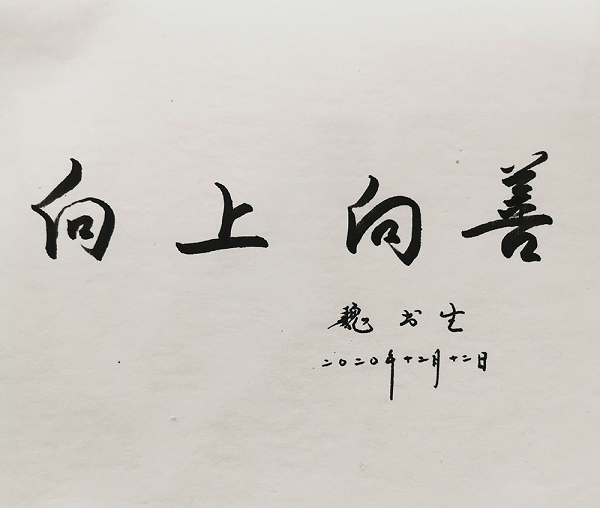 向上向善
魏书生
二〇二〇年十二月十二日